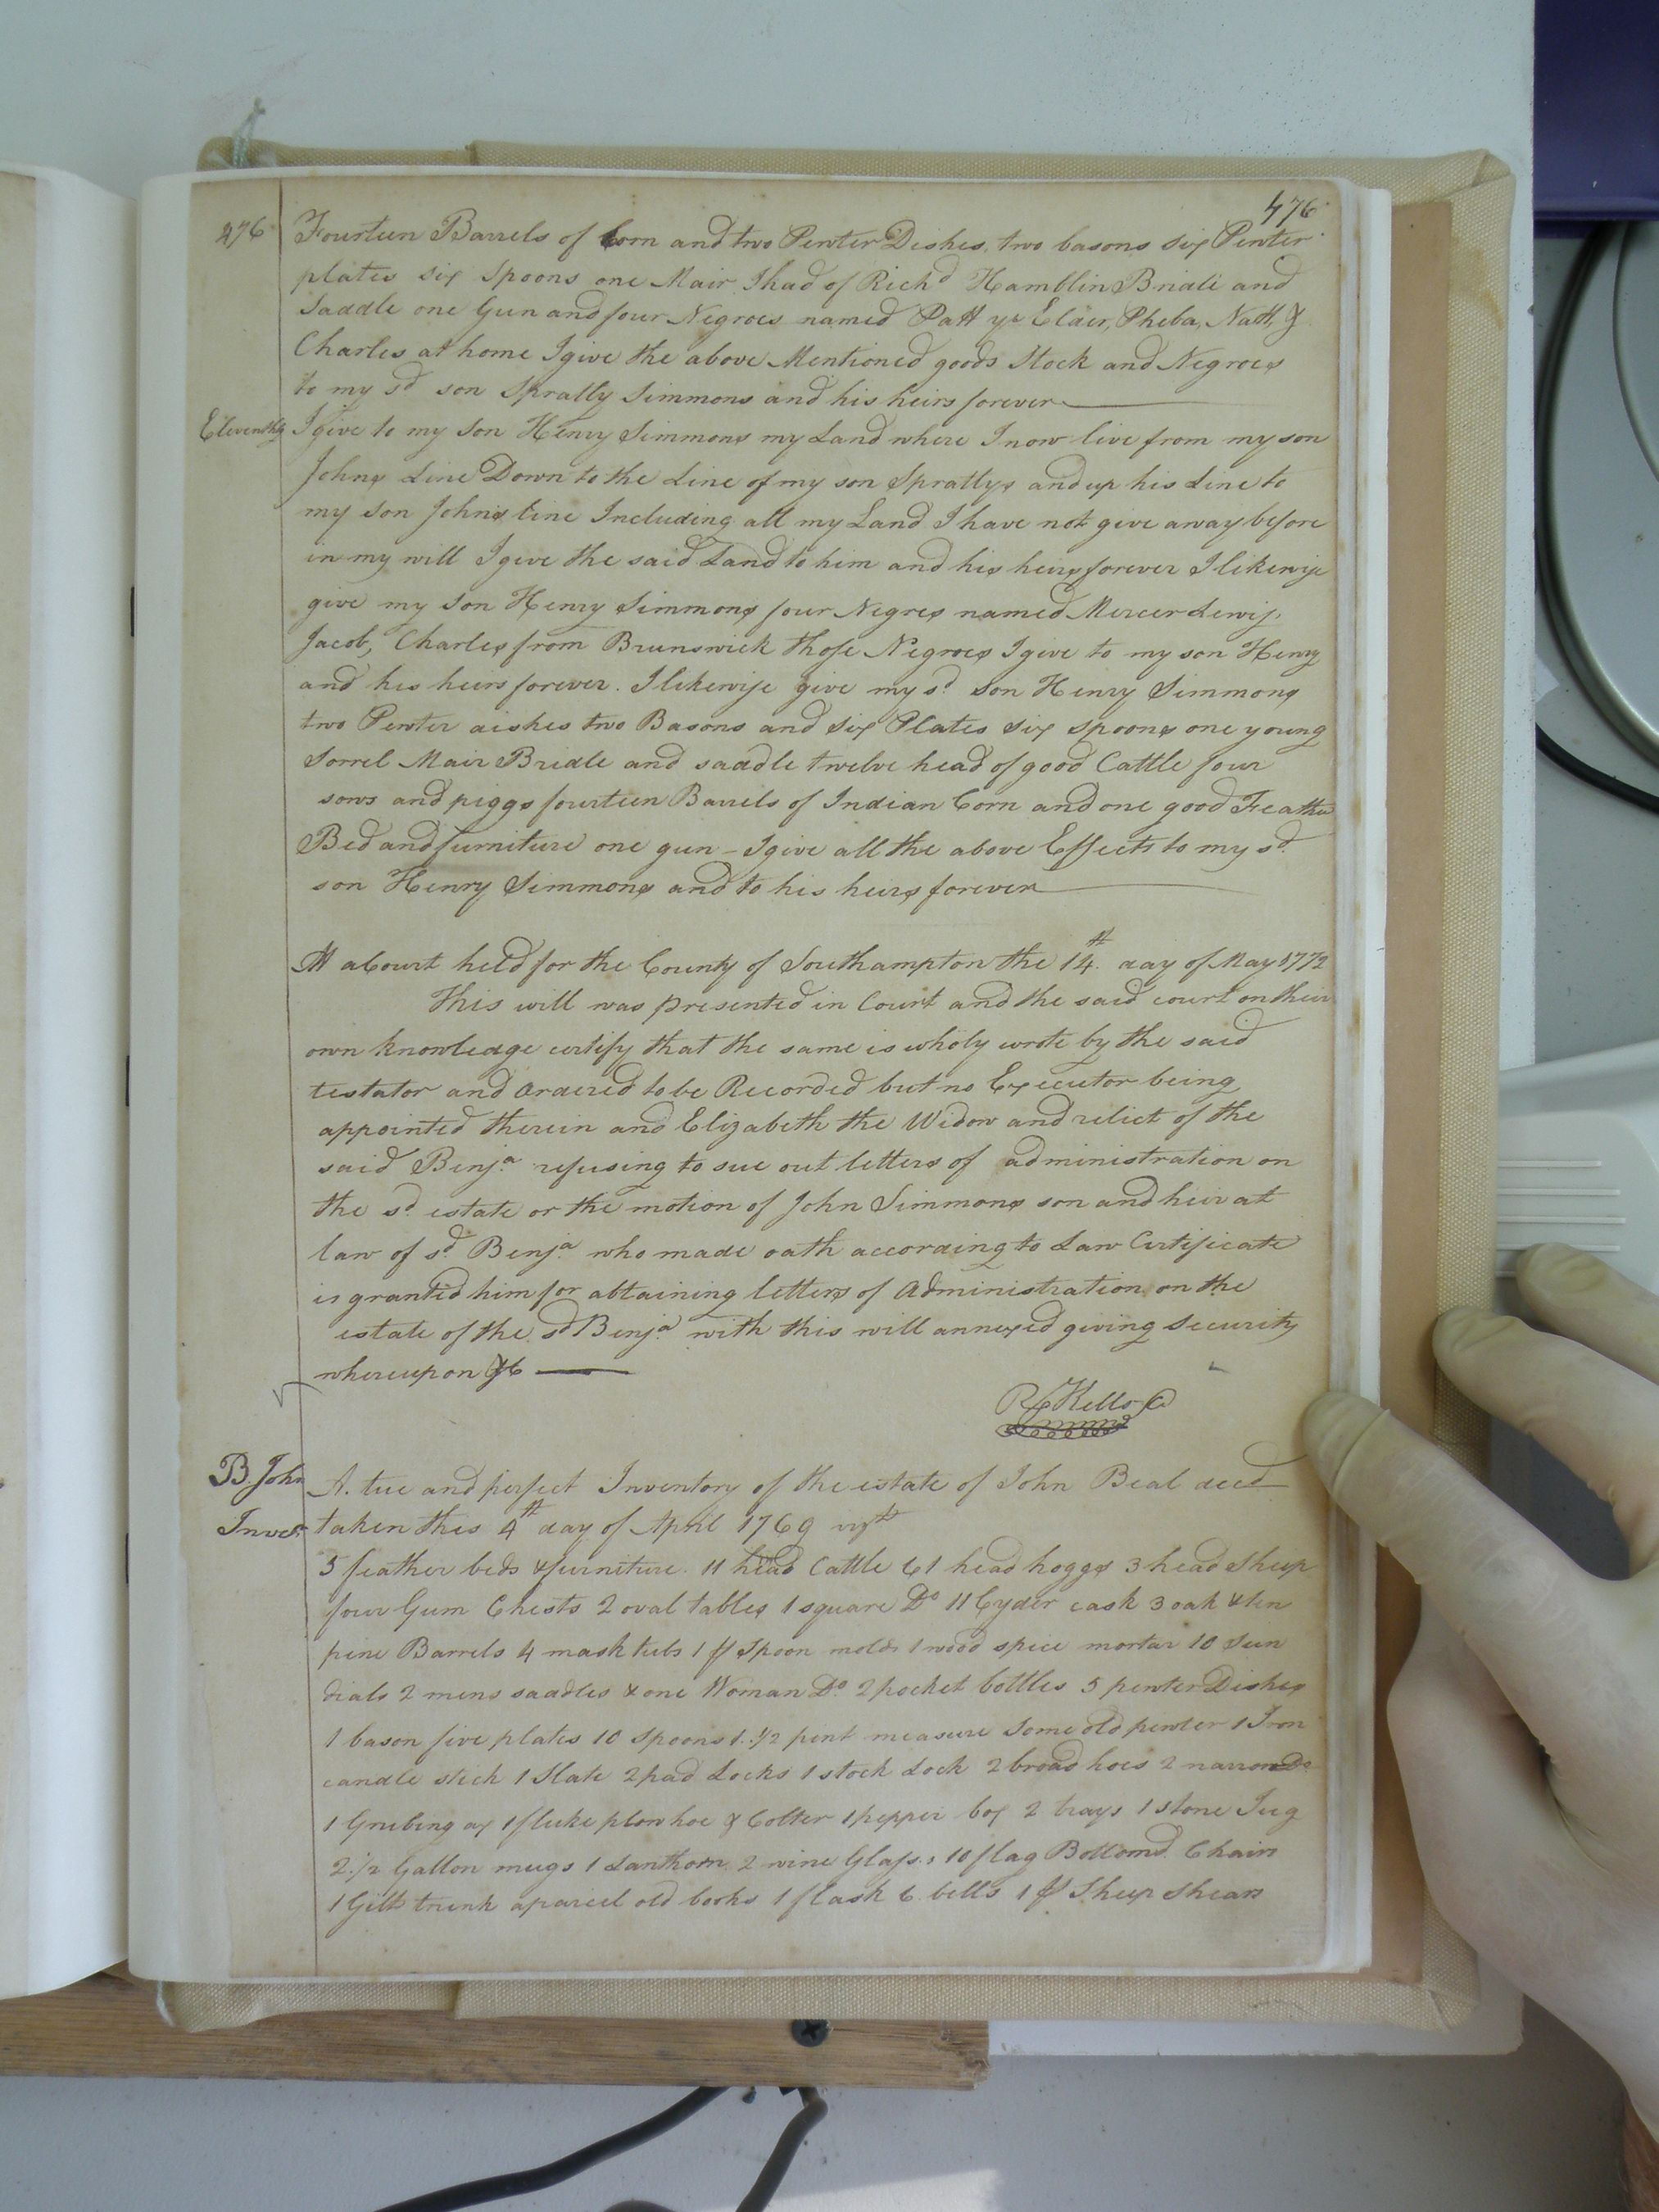 476
476
Fourteen Barrels of Corn and two Pewter Dishes, two basons six Pewter
plates six Spoons one Mair I had of Richd Hamblin Bridle and
Saddle one Gun and four Negroes named Patt ye Elder, Pheba, Natt, &
Charles at home I give the above Mentioned goods Stock and Negroes
to my sd son Spratly Simmons and his heirs forever
Eleventhly I give to my Son Henry Simmons my Land where I now live from my son
Johns Line Down to the Line of my son Spratlys and up his Line to
my Son Johns Line Including all my Land I have not give away before
in my will I give the said Land to him and his heirs forever I likewise
give my Son Henry Simmons four Negres named Mercer Lewis,
Jacob, Charles from Brunswick those Negroes I give to my son Henry
and his heirs forever. I likewise give my sd Son Henry Simmons
two Pewter dishes two Basons and six Plates six spoons one young
Sorrel Mair Bridle and saddle twelve head of good Cattle four
sows and piggs fourteen Barrels of Indian Corn and one good Feather
Bed and furniture one gun - I give all the above Effects to my sd
son Henry Simmons and to his heirs forever
At a Court held for the County of Southampton the 14th day of May 1772
This will was presented in Court and the said court on their
own knowledge certify that the same is wholy wrote by the said
testator and Ordered to be Recorded but no Executor being
appointed therein and Elizabeth the Widow and relict of the
said Benja refusing to sue out letters of administration on
the sd estate or the motion of John Simmons son and heir at
law of sd Benja who made oath according to Law Certificate
is granted him for abtaining letters of Administration on the
estate of the sd Benja with this will annexed giving Security
whereupon &c
R Kello
B. John A. tue and perfect Inventory of the estate of John Beal decd
Invet. taken this 4th day of April 1769 vizt
5 feather beds & furniture. 11 head Cattle 61 head hoggs 3 head Sheep
four Gum Chests 2 oval tables 1 square Do 11 Cyder cask 3 oak & ten
pine Barrels 4 mash tubs 1 pr Spoon molds 1 wood spice mortar 10 Sun
dials 2 mens saddles & one Woman Do. 2 pocket bottles 5 pewter Dishes
1 bason five plates 10 Spoons 1. 1/2 pint measure Some old pewter 1 Iron
candle stick 1 Slate 2 pad Locks 1 stock Lock 2 broad hoes 2 narrow Do
1 Grubing ax 1 fluke plow hoe & Colter 1 pepper box 2 trays 1 stone Jug
2. 1/2 Gallon mugs 1 Lanthorn 2 wine Glass.s 10 flag Bottomd. Chairs
1 Gilt trunk a parcel old books 1 flask 6 bells 1 pr Sheep Shears